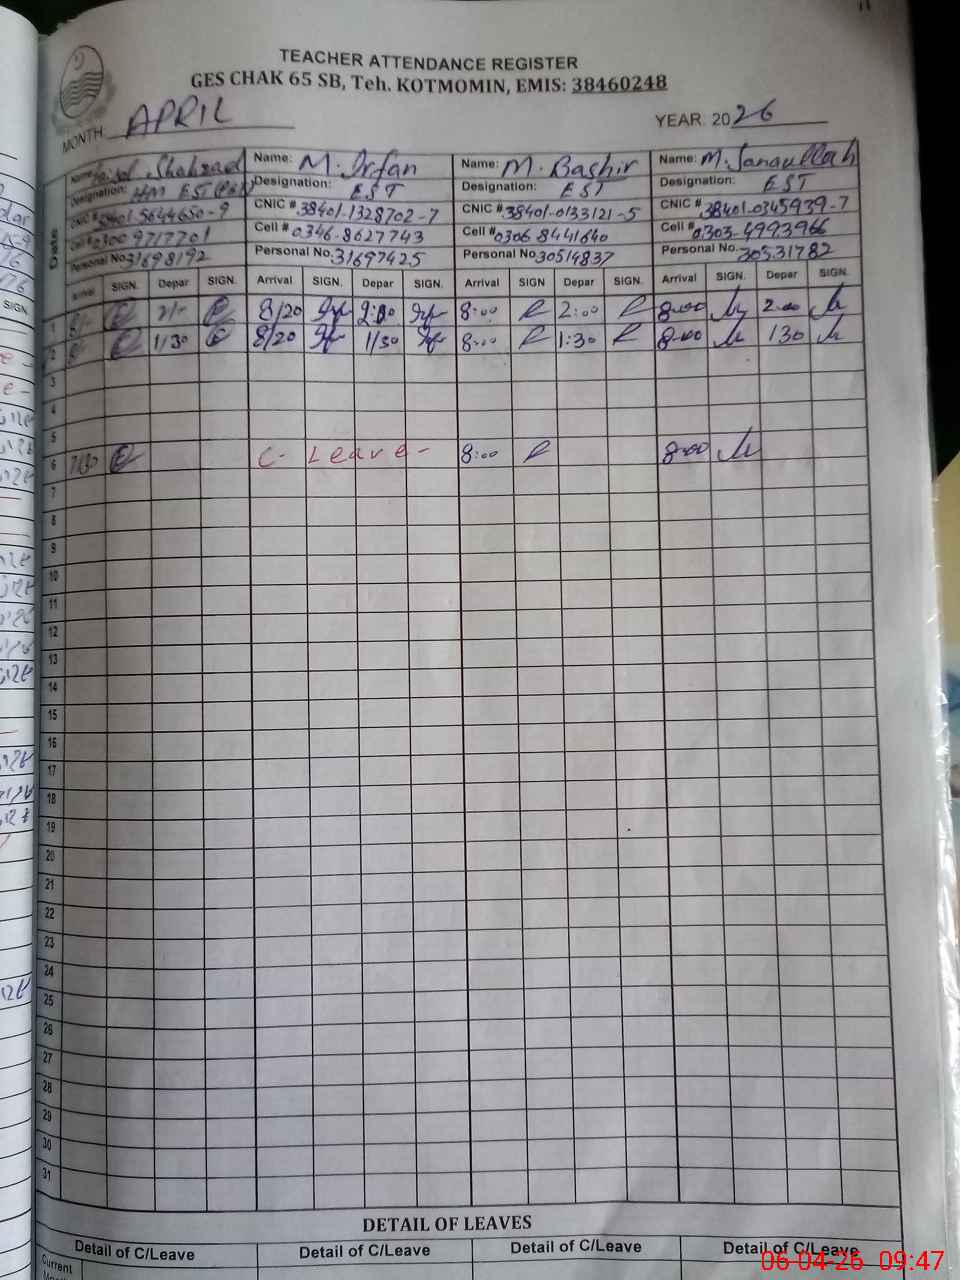 TEACHER ATTENDANCE REGISTER
GES CHAK 65 SB, Teh. KOTMOMIN, EMIS: 38460248
MONTH: APRIL YEAR: 2026
Name: Shahzad Name: M. Irfan Name: M. Bashir Name: M. Sanaullah
Designation: HM EST Designation: EST Designation: EST Designation: EST
CNIC # 38401-5644650-9 CNIC # 38401-1328702-7 CNIC # 38401-0133121-5 CNIC # 38401-0345939-7
Cell # 0300 9717701 Cell # 0346-8627743 Cell # 0306 8441640 Cell # 0303-4993966
Personal No. 31698192 Personal No. 31697425 Personal No. 30514837 Personal No. 30531782
Date Arrival SIGN. Depar SIGN. Arrival SIGN. Depar SIGN. Arrival SIGN Depar SIGN. Arrival SIGN. Depar SIGN.
1 8/- 2/- 8/20 2:00 8:00 2:00 8:00 2:00
2 8/- 1/30 8/20 1/30 8:00 1:30 8:00 130
3
4
5
6 7/30 C- Leave - 8:00 8:00
7
8
9
10
11
12
13
14
15
16
17
18
19
20
21
22
23
24
25
26
27
28
29
30
31
DETAIL OF LEAVES
Detail of C/Leave Detail of C/Leave Detail of C/Leave Detail of C/Leave
Current
06-04-26 09:47